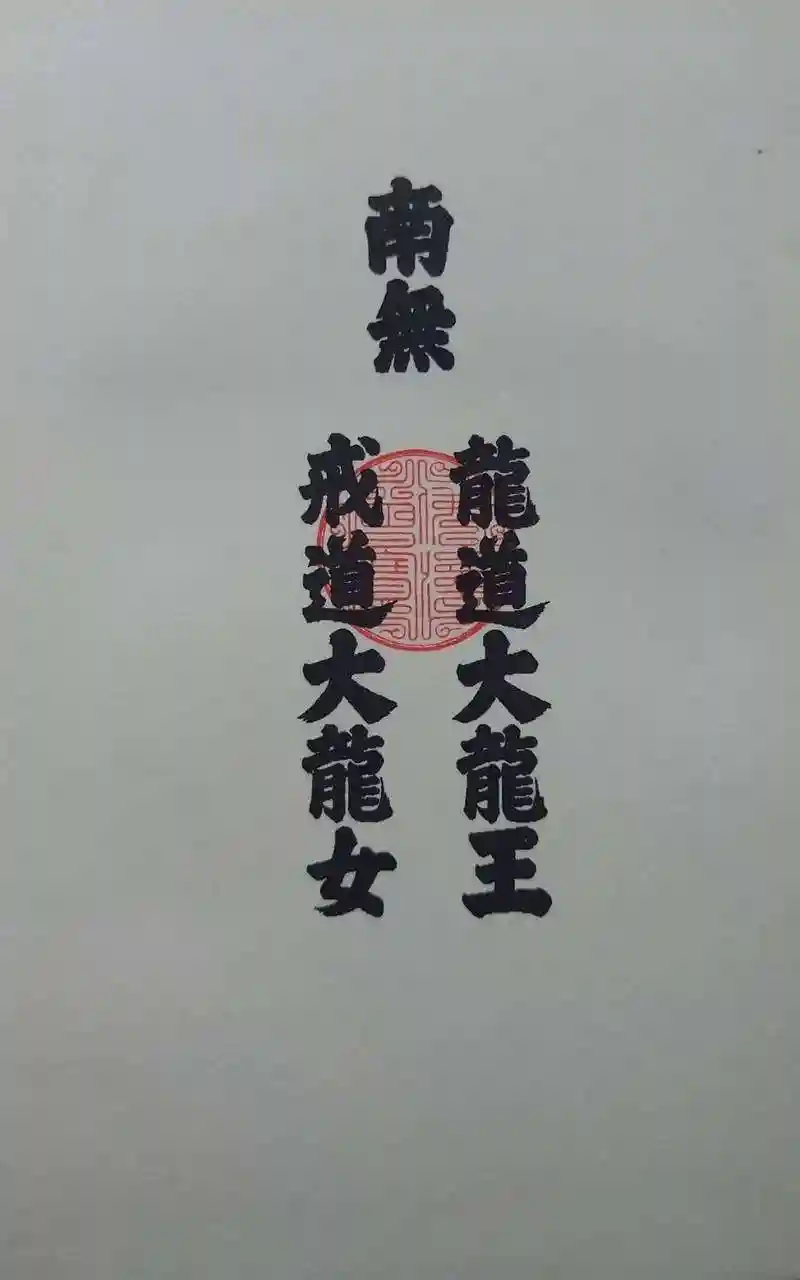 南無
龍道大龍王
戒道大龍女